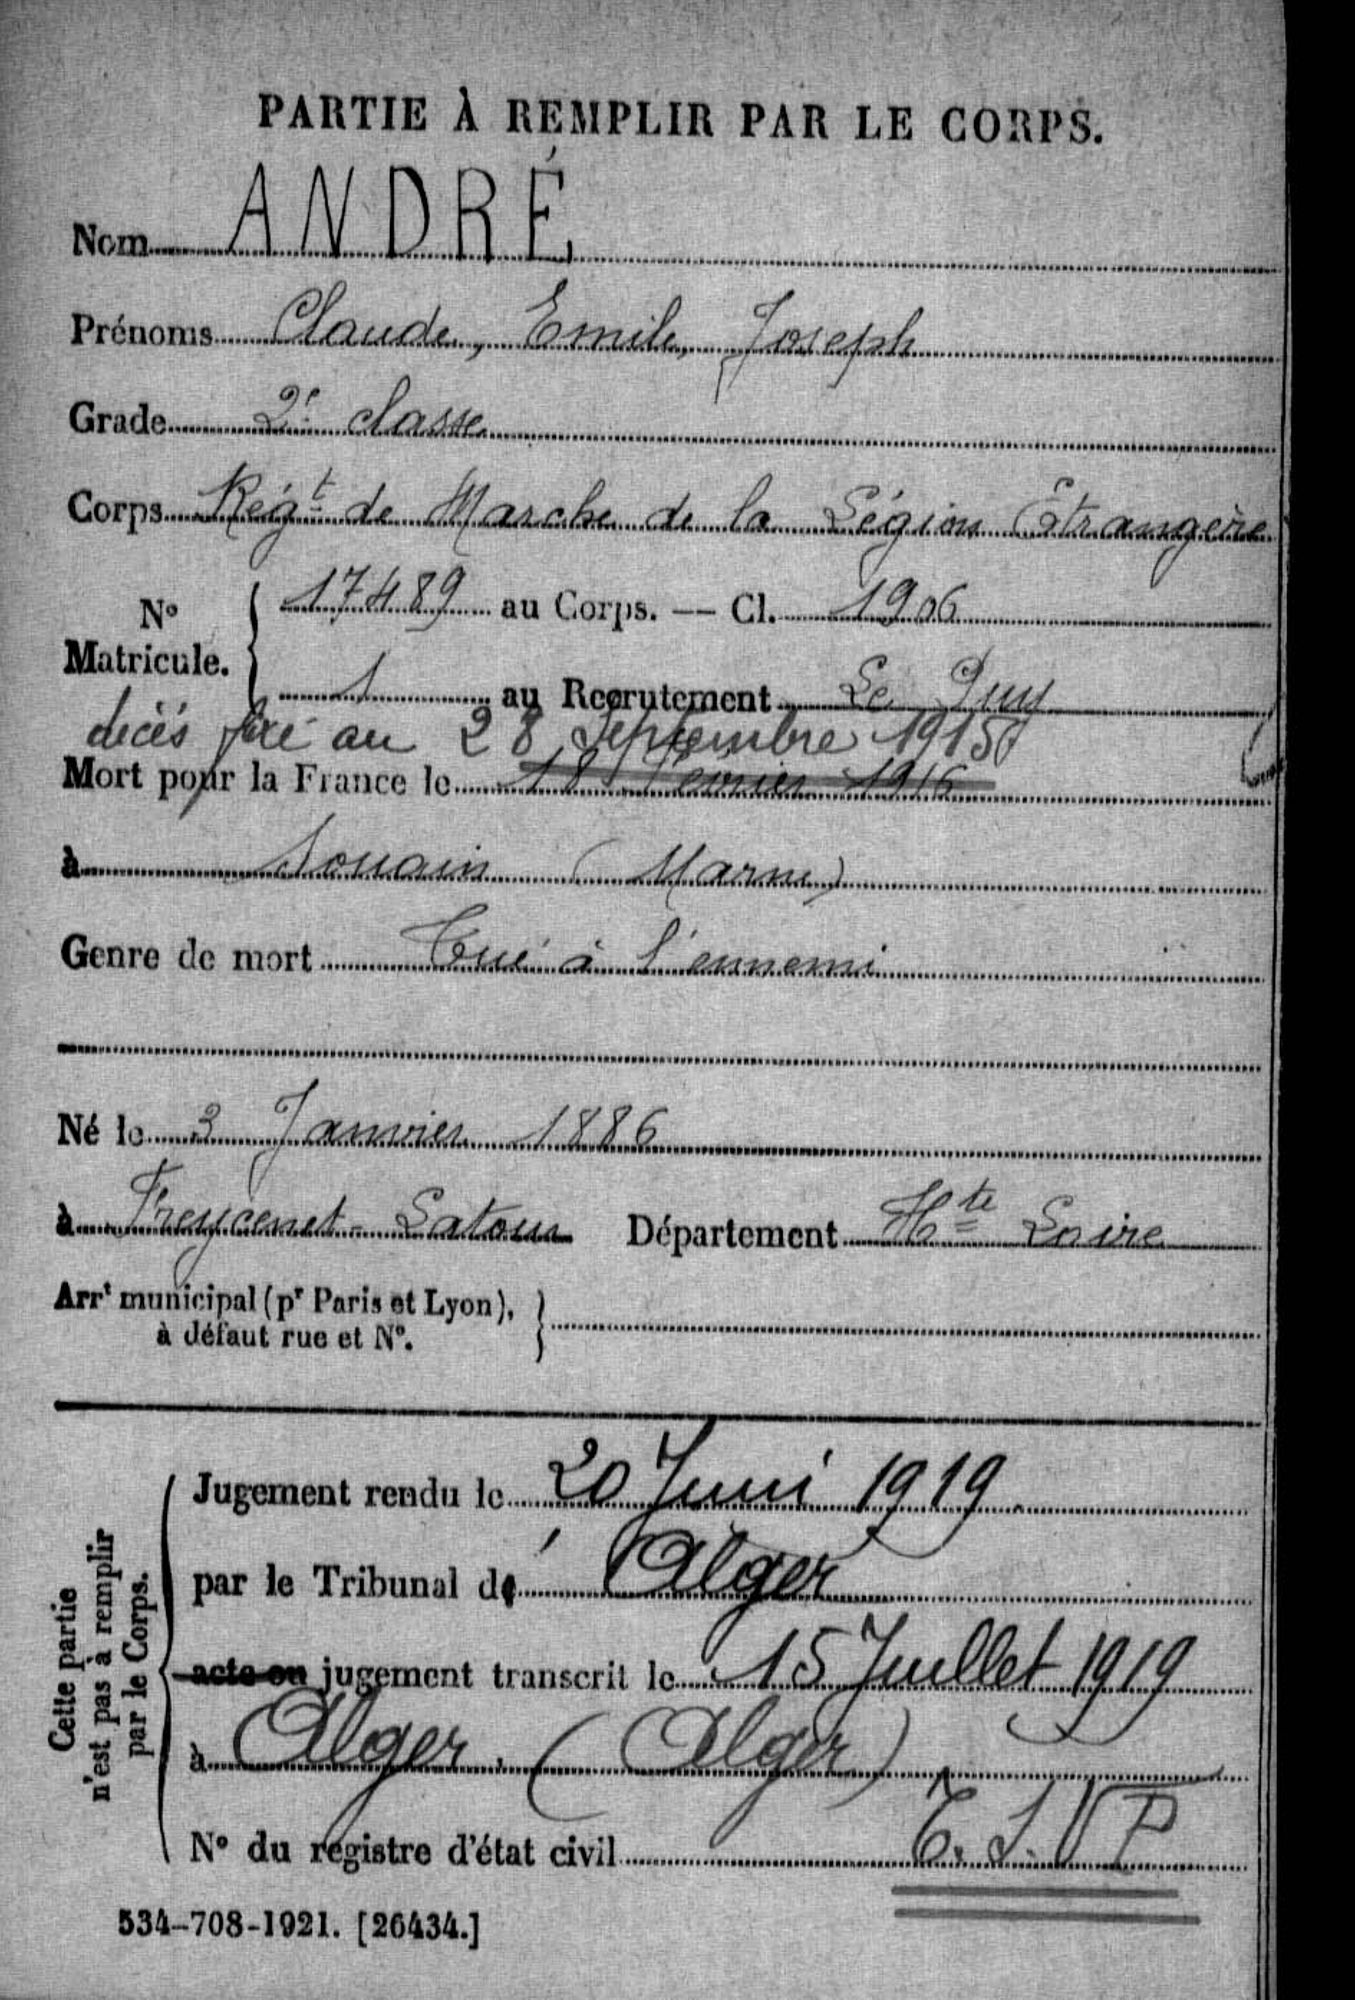 PARTIE À REMPLIR PAR LE CORPS.
Nom ANDRÉ
Prénoms Claude, Emile, Joseph
Grade 2e classe
Corps Régt de Marche de la Légion Étrangère
N° Matricule. { 17489 au Corps. — Cl. 1906
1 au Recrutement Le Puy
décès fixé au 28 Septembre 1915
Mort pour la France le 18 Février 1916
à Souain (Marne)
Genre de mort Tué à l'ennemi
Né le 3 Janvier 1886
à Freycenet-Latour Département Hte Loire
Arrt municipal (pr Paris et Lyon),
à défaut rue et N°.
Cette partie
n'est pas à remplir
par le Corps.
Jugement rendu le 20 Juin 1919
par le Tribunal de Alger
acte ou jugement transcrit le 15 Juillet 1919
à Alger (Alger)
N° du registre d'état civil
534-708-1921. [26434.]